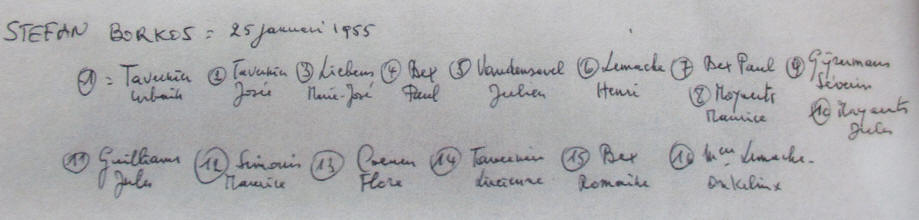 STEFAN BORKOS = 25 Januari 1955
① = Tavernier Urbain ② Tavernier Josée ③ Liebens Marie-José ④ Bex Paul ⑤ Vandensavel Julien ⑥ Lemache Henri ⑦ Bex Paul ⑧ Moyaerts Maurice ⑨ Gijzermans Séverin ⑩ Moyaerts Jules
⑪ Guilliams Jules ⑫ Simonis Maurice ⑬ Coenen Flore ⑭ Tavernier Lucienne ⑮ Bex Romaine ⑯ Mme Lemache-Onkelinx